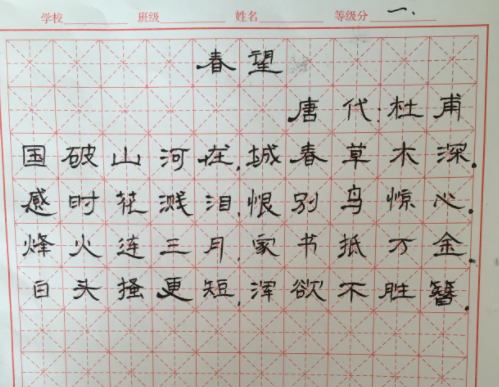 学校 班级 姓名 等级分 一、
春望
唐代杜甫
国破山河在,城春草木深.
感时花溅泪,恨别鸟惊心.
烽火连三月,家书抵万金.
白头搔更短,浑欲不胜簪.